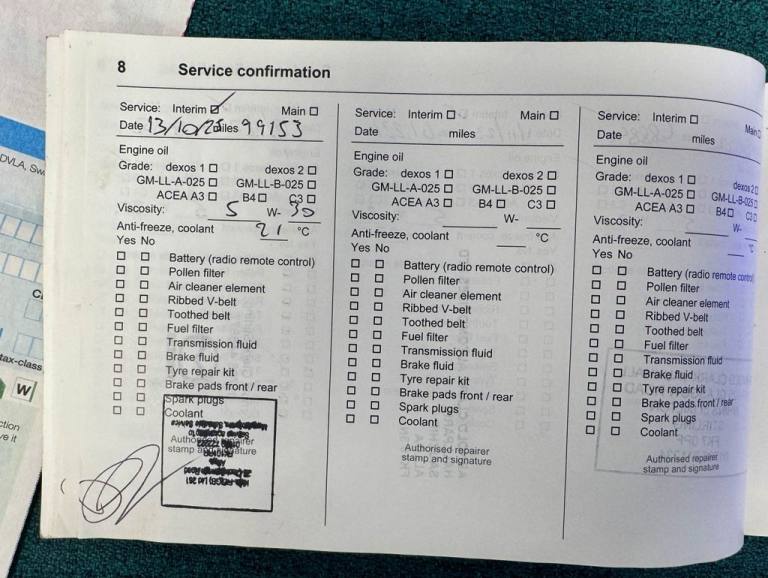 8 Service confirmation
Service: Interim ☑ Main ☐
Date 13/10/25 miles 99153
Engine oil
Grade: dexos 1 ☐ dexos 2 ☐
GM-LL-A-025 ☐ GM-LL-B-025 ☐
ACEA A3 ☐ B4 ☐ C3 ☐
Viscosity: 5 W- 30
Anti-freeze, coolant 21 °C
Yes No
☐ ☐ Battery (radio remote control)
☐ ☐ Pollen filter
☐ ☐ Air cleaner element
☐ ☐ Ribbed V-belt
☐ ☐ Toothed belt
☐ ☐ Fuel filter
☐ ☐ Transmission fluid
☐ ☐ Brake fluid
☐ ☐ Tyre repair kit
☐ ☐ Brake pads front / rear
☐ ☐ Spark plugs
☐ ☐ Coolant
Authorised repairer
stamp and signature
Service: Interim ☐ Main ☐
Date miles
Engine oil
Grade: dexos 1 ☐ dexos 2 ☐
GM-LL-A-025 ☐ GM-LL-B-025 ☐
ACEA A3 ☐ B4 ☐ C3 ☐
Viscosity: W-
Anti-freeze, coolant °C
Yes No
☐ ☐ Battery (radio remote control)
☐ ☐ Pollen filter
☐ ☐ Air cleaner element
☐ ☐ Ribbed V-belt
☐ ☐ Toothed belt
☐ ☐ Fuel filter
☐ ☐ Transmission fluid
☐ ☐ Brake fluid
☐ ☐ Tyre repair kit
☐ ☐ Brake pads front / rear
☐ ☐ Spark plugs
☐ ☐ Coolant
Authorised repairer
stamp and signature
Service: Interim ☐ Main ☐
Date miles
Engine oil
Grade: dexos 1 ☐ dexos 2 ☐
GM-LL-A-025 ☐ GM-LL-B-025 ☐
ACEA A3 ☐ B4 ☐ C3 ☐
Viscosity: W-
Anti-freeze, coolant °C
Yes No
☐ ☐ Battery (radio remote control)
☐ ☐ Pollen filter
☐ ☐ Air cleaner element
☐ ☐ Ribbed V-belt
☐ ☐ Toothed belt
☐ ☐ Fuel filter
☐ ☐ Transmission fluid
☐ ☐ Brake fluid
☐ ☐ Tyre repair kit
☐ ☐ Brake pads front / rear
☐ ☐ Spark plugs
☐ ☐ Coolant
Authorised repairer
stamp and signature
DVLA,
tax-class
W